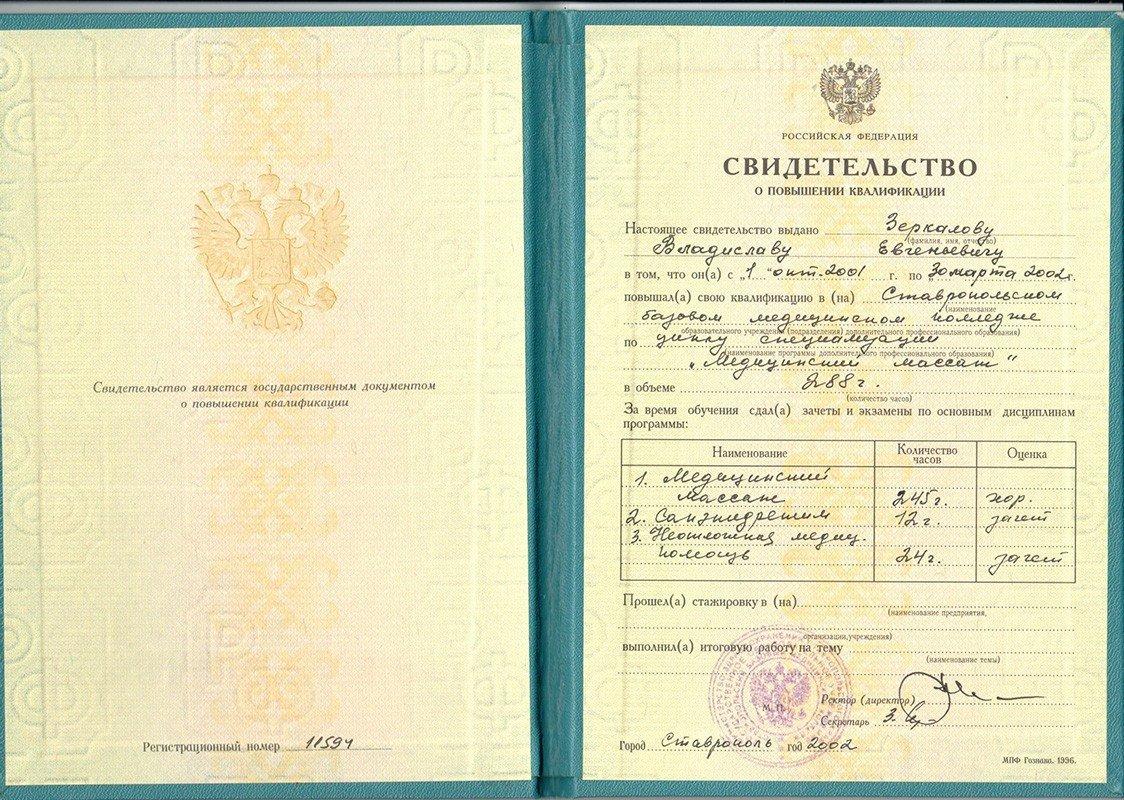 Свидетельство является государственным документом
о повышении квалификации
Регистрационный номер 11594
РОССИЙСКАЯ ФЕДЕРАЦИЯ
СВИДЕТЕЛЬСТВО
О ПОВЫШЕНИИ КВАЛИФИКАЦИИ
Настоящее свидетельство выдано Зеркалову
(фамилия, имя, отчество)
Владиславу Евгеньевичу
в том, что он(а) с „1“ окт. 2001 г. по 30 марта 2002 г.
повышал(а) свою квалификацию в (на) Ставропольском
(наименование
базовом медицинском колледже
образовательного учреждения (подразделения) дополнительного профессионального образования)
по циклу специализации
(наименование программы дополнительного профессионального образования)
„Медицинский массаж"
в объеме 288 г.
(количество часов)
За время обучения сдал(а) зачеты и экзамены по основным дисциплинам
программы:
Наименование Количество часов Оценка
1. Медицинский
массаж 245 г. хор.
2. Санэпидрежим 12 г. зачет
3. Неотложная медиц.
помощь 24 г. зачет
Прошел(а) стажировку в (на)
(наименование предприятия,
организации, учреждения)
выполнил(а) итоговую работу на тему
(наименование темы)
М. П.
Ректор (директор)
Секретарь
Город Ставрополь год 2002
МПФ Гознака. 1996.